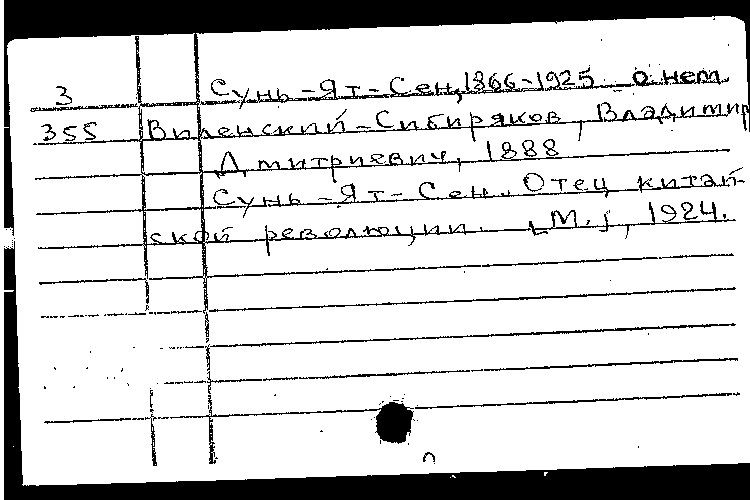 3 Сунь-Ят-Сен, 1866-1925 о нем
355 Виленский-Сибиряков, Владимир
Дмитриевич, 1888
Сунь-Ят-Сен. Отец китай-
ской революции. [М.], 1924.